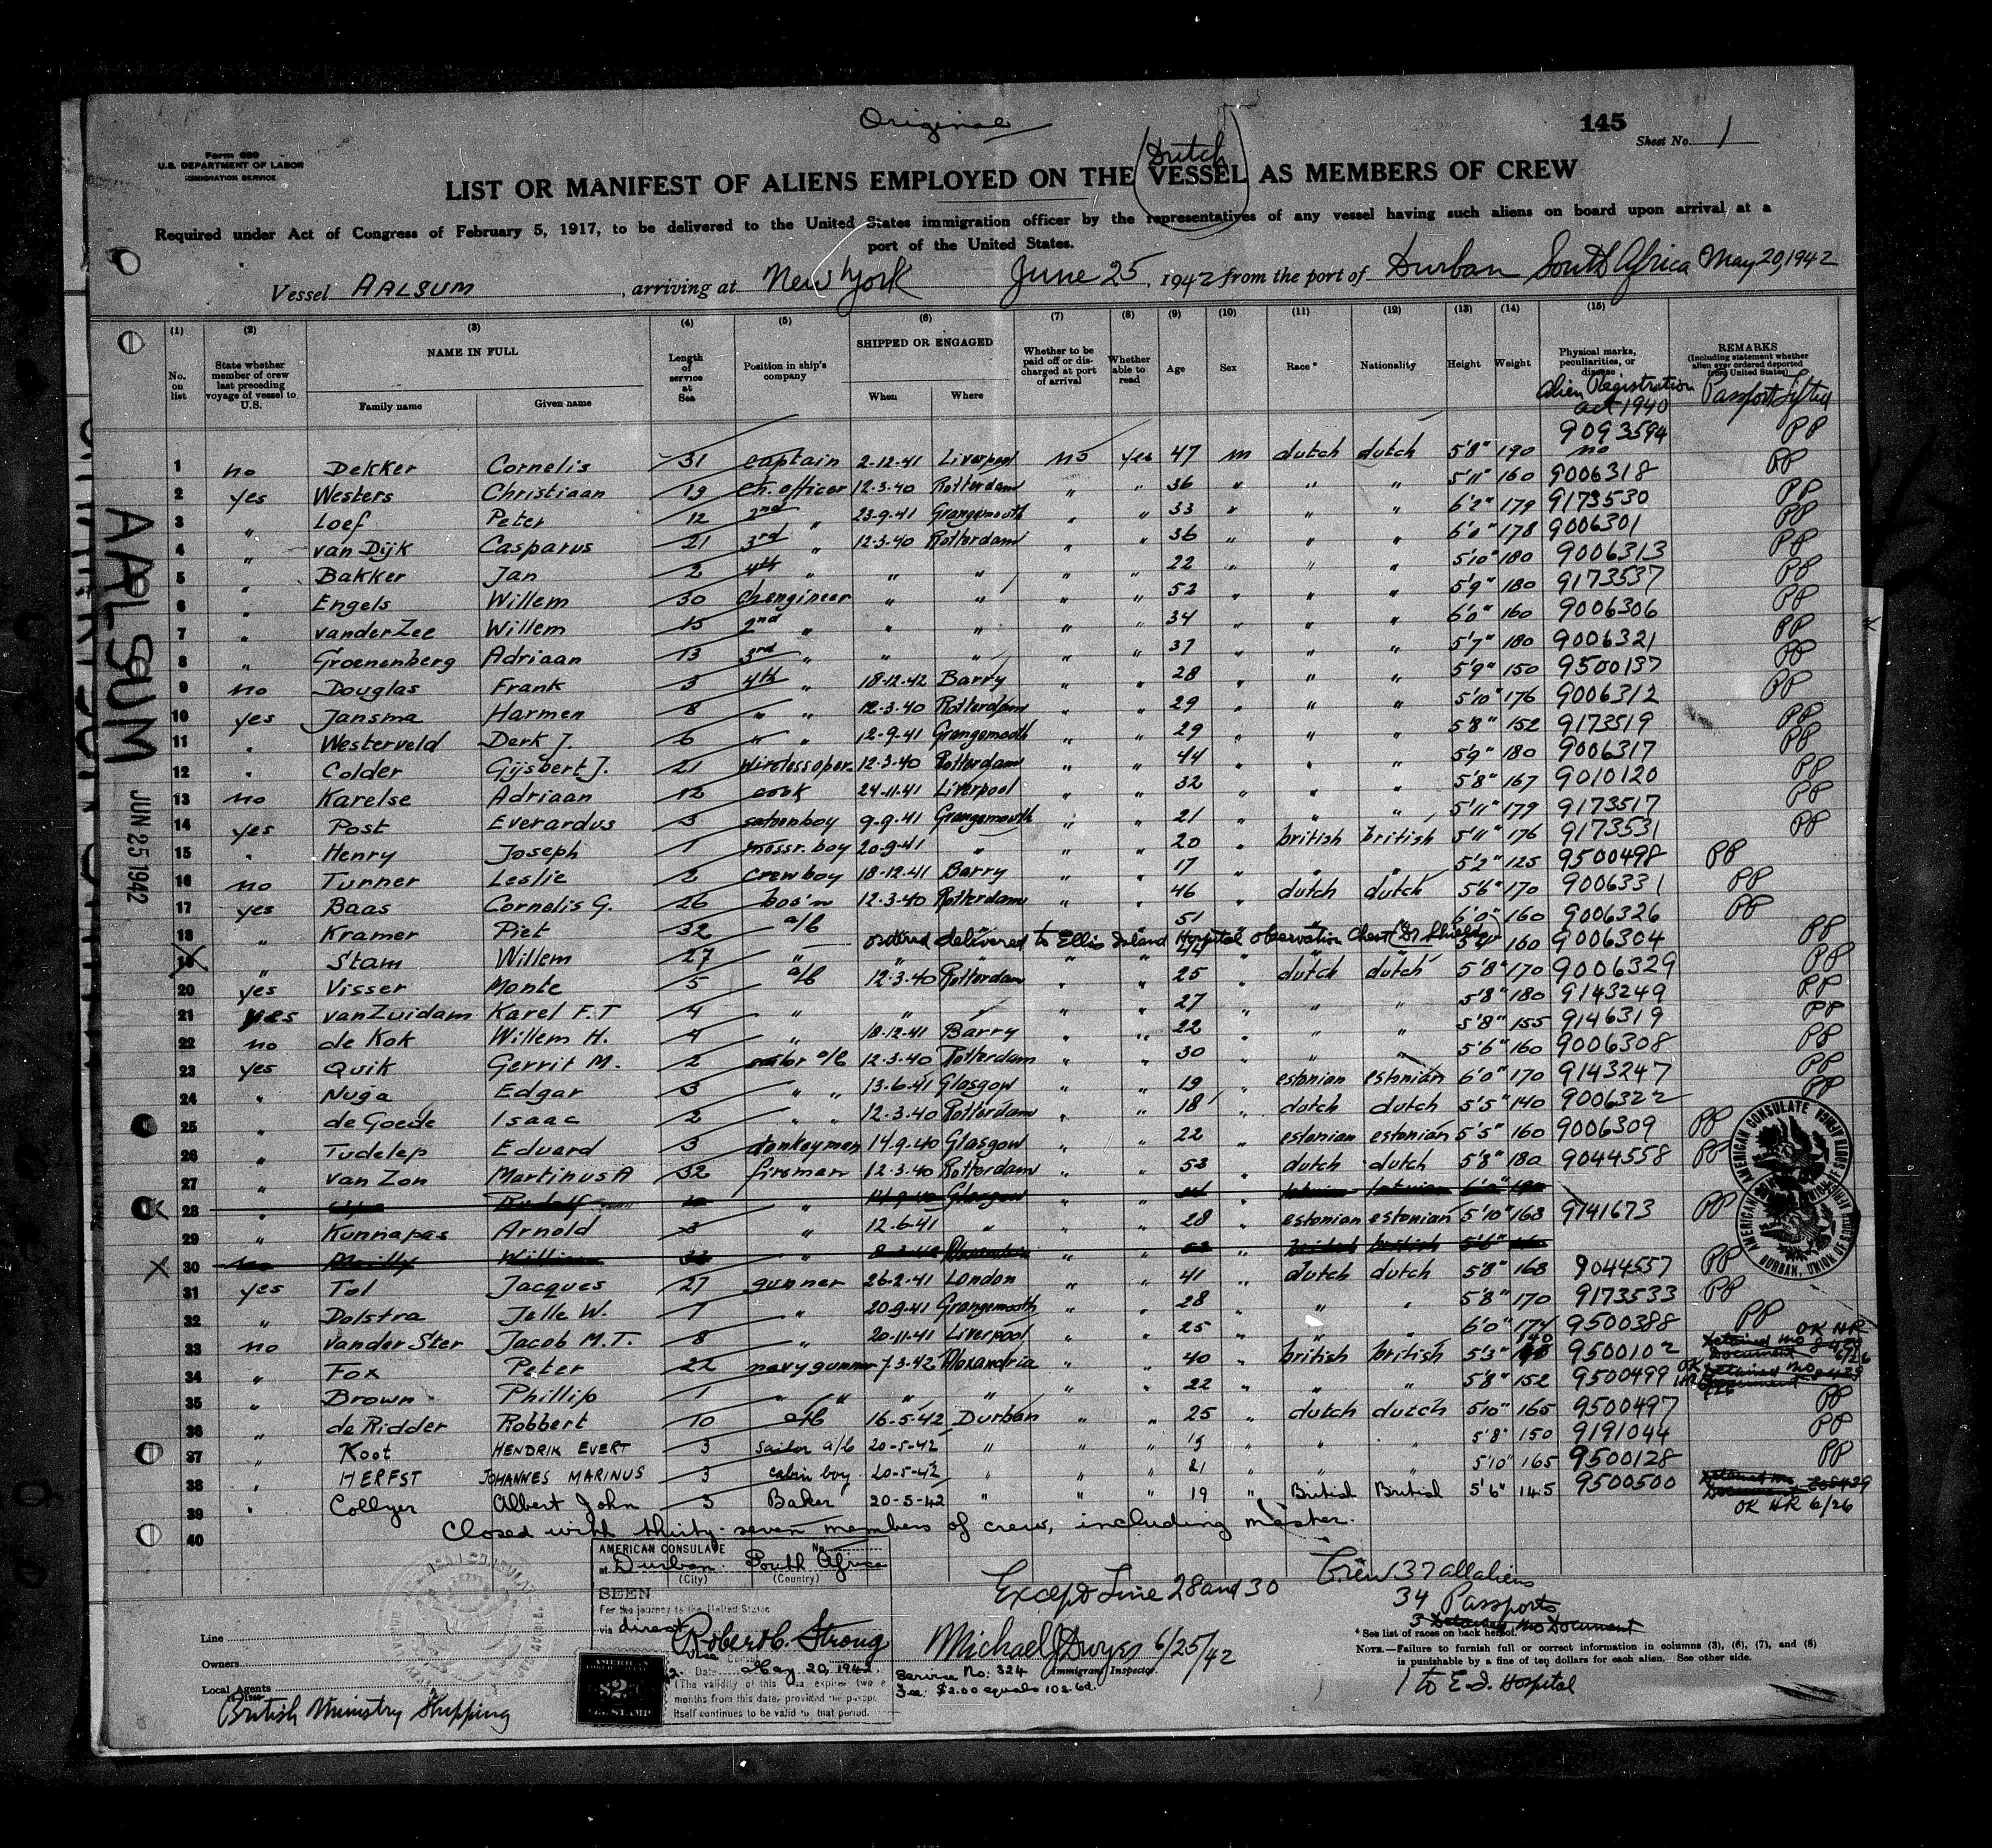 Original
145
Sheet No. 1
Form 680
U.S. DEPARTMENT OF LABOR
IMMIGRATION SERVICE
Dutch
LIST OR MANIFEST OF ALIENS EMPLOYED ON THE VESSEL AS MEMBERS OF CREW
Required under Act of Congress of February 5, 1917, to be delivered to the United States immigration officer by the representatives of any vessel having such aliens on board upon arrival at a
port of the United States.
Vessel AALSUM, arriving at New York June 25, 1942 from the port of Durban South Africa May 20, 1942
(1) (2) (3) (4) (5) (6) (7) (8) (9) (10) (11) (12) (13) (14) (15)
No. on list
State whether member of crew last preceding voyage of vessel to U.S.
NAME IN FULL
Family name Given name
Length of service at Sea
Position in ship's company
SHIPPED OR ENGAGED
When Where
Whether to be paid off or discharged at port of arrival
Whether able to read
Age
Sex
Race*
Nationality
Height
Weight
Physical marks, peculiarities, or disease
Alien Registration act 1940
REMARKS
(Including statement whether alien ever ordered deported from United States)
Passport Lifted
1 no Dekker Cornelis 31 captain 2-12-41 Liverpool no yes 47 m dutch dutch 5'8" 190 9093594 no PP
2 yes Westers Christiaan 19 ch. officer 12-3-40 Rotterdam " " 36 " " " 5'11" 160 9006318 PP
3 " Loef Peter 12 2nd " 23-9-41 Grangemouth " " 33 " " " 6'2" 179 9173530 PP
4 " van Dijk Casparus 21 3rd " 12-3-40 Rotterdam " " 36 " " " 6'0" 178 9006301 PP
5 " Bakker Jan 2 4th " " " " " 22 " " " 5'10" 180 9006313 PP
6 " Engels Willem 30 ch. engineer " " " " 52 " " " 5'9" 180 9173537 PP
7 " van der Zee Willem 15 2nd " " " " " 34 " " " 6'0" 160 9006306 PP
8 " Groenenberg Adriaan 13 3rd " " " " " 37 " " " 5'7" 180 9006321 PP
9 no Douglas Frank 3 4th " 18-12-42 Barry " " 28 " " " 5'9" 150 9500137 PP
10 yes Jansma Harmen 8 " " 12-3-40 Rotterdam " " 29 " " " 5'10" 176 9006312 PP
11 " Westerveld Derk J. 6 " " 12-9-41 Grangemouth " " 29 " " " 5'8" 152 9173519 PP
12 " Colder Gijsbert J. 21 wireless oper. 12-3-40 Rotterdam " " 44 " " " 5'9" 180 9006317 PP
13 no Karelse Adriaan 12 cook 24-11-41 Liverpool " " 32 " " " 5'8" 167 9010120 PP
14 yes Post Everardus 3 9-9-41 Grangemouth " " 21 " " " 5'11" 179 9173517 PP
15 " Henry Joseph 1 messr. boy 20-9-41 " " " 20 " british british 5'11" 176 9173531 PP
16 no Turner Leslie 2 crew boy 18-12-41 Barry " " 17 " " " 5'2" 125 9500498 PP
17 yes Baas Cornelis G. 26 bos'n 12-3-40 Rotterdam " " 46 " dutch dutch 5'6" 170 9006331 PP
18 " Kramer Piet 32 a/b " " " " 51 " " " 6'0" 160 9006326 PP
ordered delivered to Ellis Island Hospital observation Chest (Dr Shields)
19 " Stam Willem 27 " " " " " " " " 160 9006304 PP
20 yes Visser Monte 5 a/b 12-3-40 Rotterdam " " 25 " dutch dutch 5'8" 170 9006329 PP
21 yes van Zuidam Karel F.T 4 " " " " " 27 " " " 5'8" 180 9143249 PP
22 no de Kok Willem H. 4 " 18-12-41 Barry " " 22 " " " 5'8" 155 9146319 PP
23 yes Quik Gerrit M. 2 sailor o/s 12-3-40 Rotterdam " " 30 " " " 5'6" 160 9006308 PP
24 " Nuga Edgar 3 " " 13-6-41 Glasgow " " 19 " estonian estonian 6'0" 170 9143247 PP
25 " de Goede Isaac 2 " " 12-3-40 Rotterdam " " 18 " dutch dutch 5'5" 140 9006322 PP
26 " Tudelep Eduard 3 donkeyman 14-9-40 Glasgow " " 22 " estonian estonian 5'5" 160 9006309 PP
27 " van Zon Martinus A 32 fireman 12-3-40 Rotterdam " " 53 " dutch dutch 5'8" 180 9044558 PP
28 " Rudolf " 14-9-40 Glasgow " " "
29 " Kunnapas Arnold 3 " 12-6-41 " " " 28 " estonian estonian 5'10" 168 9141673 PP
30 no William " " " 53 " british british 5'6"
31 yes Tol Jacques 27 gunner 26-2-41 London " " 41 " dutch dutch 5'8" 168 9044557 PP
32 " Dolstra Jelle W. 7 " 20-9-41 Grangemouth " " 28 " " " 5'8" 170 9173533 PP
33 no van der Ster Jacob M.T. 8 " 20-11-41 Liverpool " " 25 " " " 6'0" 174 9500388 PP
34 " Fox Peter 22 navy gunner 7-3-42 Alexandria " " 40 " british british 5'3" 140 9500102 Detained no Document OK HR 6/26
35 " Brown Phillip 1 " " " " " " 22 " " " 5'8" 152 9500499 OK HR Detained no Document
36 " de Ridder Robbert 10 a/b 16-5-42 Durban " " 25 " dutch dutch 5'10" 165 9500497 PP
37 " Koot HENDRIK EVERT 3 sailor a/b 20-5-42 " " " 19 " " " 5'8" 150 9191044 PP
38 " HERFST JOHANNES MARINUS 3 cabin boy 20-5-42 " " " 21 " " " 5'10" 165 9500128 PP
39 " Collyer Albert John 3 Baker 20-5-42 " " " 19 " British British 5'6" 145 9500500 Detained no Document OK HR 6/26
40 Closed with thirty-seven members of crew, including master.
AALSUM
JUN 25 1942
AMERICAN CONSULATE
at Durban South Africa
(City) (Country)
SEEN
For the journey to the United States
via direct
Robert C. Strong
Vice Consul
Date May 20, 1942.
(The validity of this visa expires twelve months from this date, provided the passport itself continues to be valid for that period.
Service No: 324
Fee: $2.00 equals 10s. 6d.
Except Line 28 and 30
Michael J Dwyer 6/25/42
Immigrant Inspector.
Crew 37 all aliens
34 Passports
3 Detained, no Document
* See list of races on back hereof.
NOTE.—Failure to furnish full or correct information in columns (3), (6), (7), and (8)
is punishable by a fine of ten dollars for each alien. See other side.
1 to E.I. Hospital
Line
Owners
Local Agents
British Ministry Shipping
AMERICAN CONSULATE
DURBAN, UNION OF SOUTH AFRICA